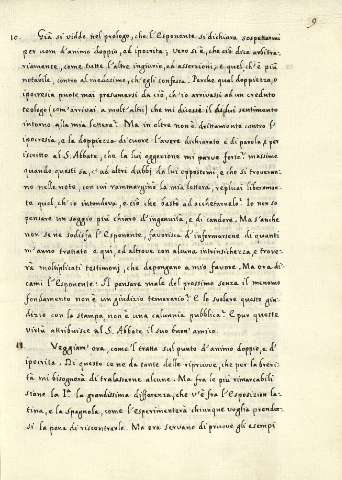 9
10. Già si vidde nel prologo, che l'Esponente si dichiara sospettarmi
per uom d'animo doppio, ed ipocrita; vero si è, che ciò dice arbitra-
riamente, come tutte l'altre ingiurie, ed asserzioni, e quel ch'è più
notabile, contro al medesimo, ch'egli confessa. Perche qual doppiezza, o
ipocresia puote mai presumersi da ciò, ch'io arrivassi ad un creduto
teologo (com'arrivai a molt'altri) che mi dicesse il di lui sentimento
intorno alla mia lettera? Ma in oltre non è drittamente contro l'
ipocresia, e la doppiezza di cuore l'avere dichiarato e di parola, e per
iscritto al S. Abbate, che la lui oggezione mi parve forte? massime
quando questi sa, ch'ad altre dubbj da lui oppostemi, e che si trovera-
no nelle note, con cui rammargina la mia lettera, replicai liberamen-
te quel, ch'io intendeva, e ciò che bastò ad acchetarvelo? Io non so
pensare un saggio più chiaro d'ingenuità, e di candore. Ma s'anche
non se ne sodisfa l'Esponente, favorisca d'informarsene di quanti
m'anno trattato e qui, ed altrove con alcuna intrinsichezza, e trove-
rà moltiplicati testimonj, che depongano a mio favore. Ma ora di-
cami l'Esponente: Il pensare male del prossimo senza il menomo
fondamento non è un giudizio temerario? E lo svelare questo giu-
dizio con la stampa non è una calunnia pubblica? E pur queste
virtù attribuisce al S. Abbate il suo buon'amico.
11. Veggiam'ora, come l'tratta sul punto d'animo doppio, e d'
ipocrita. Di queste ce ne da tante delle ripruove, che per la brevi-
tà mi bisognerà di tralasserne alcune. Ma fra le più rimarcabili
sione la 1.ª la grandissima differenza, che v'è fra l'Esposizion la-
tina, e la spagnola, come l'esperimenterà chiunque voglia prender-
si la pena di riscontrarle. Ma ora servano di pruove gli esempi